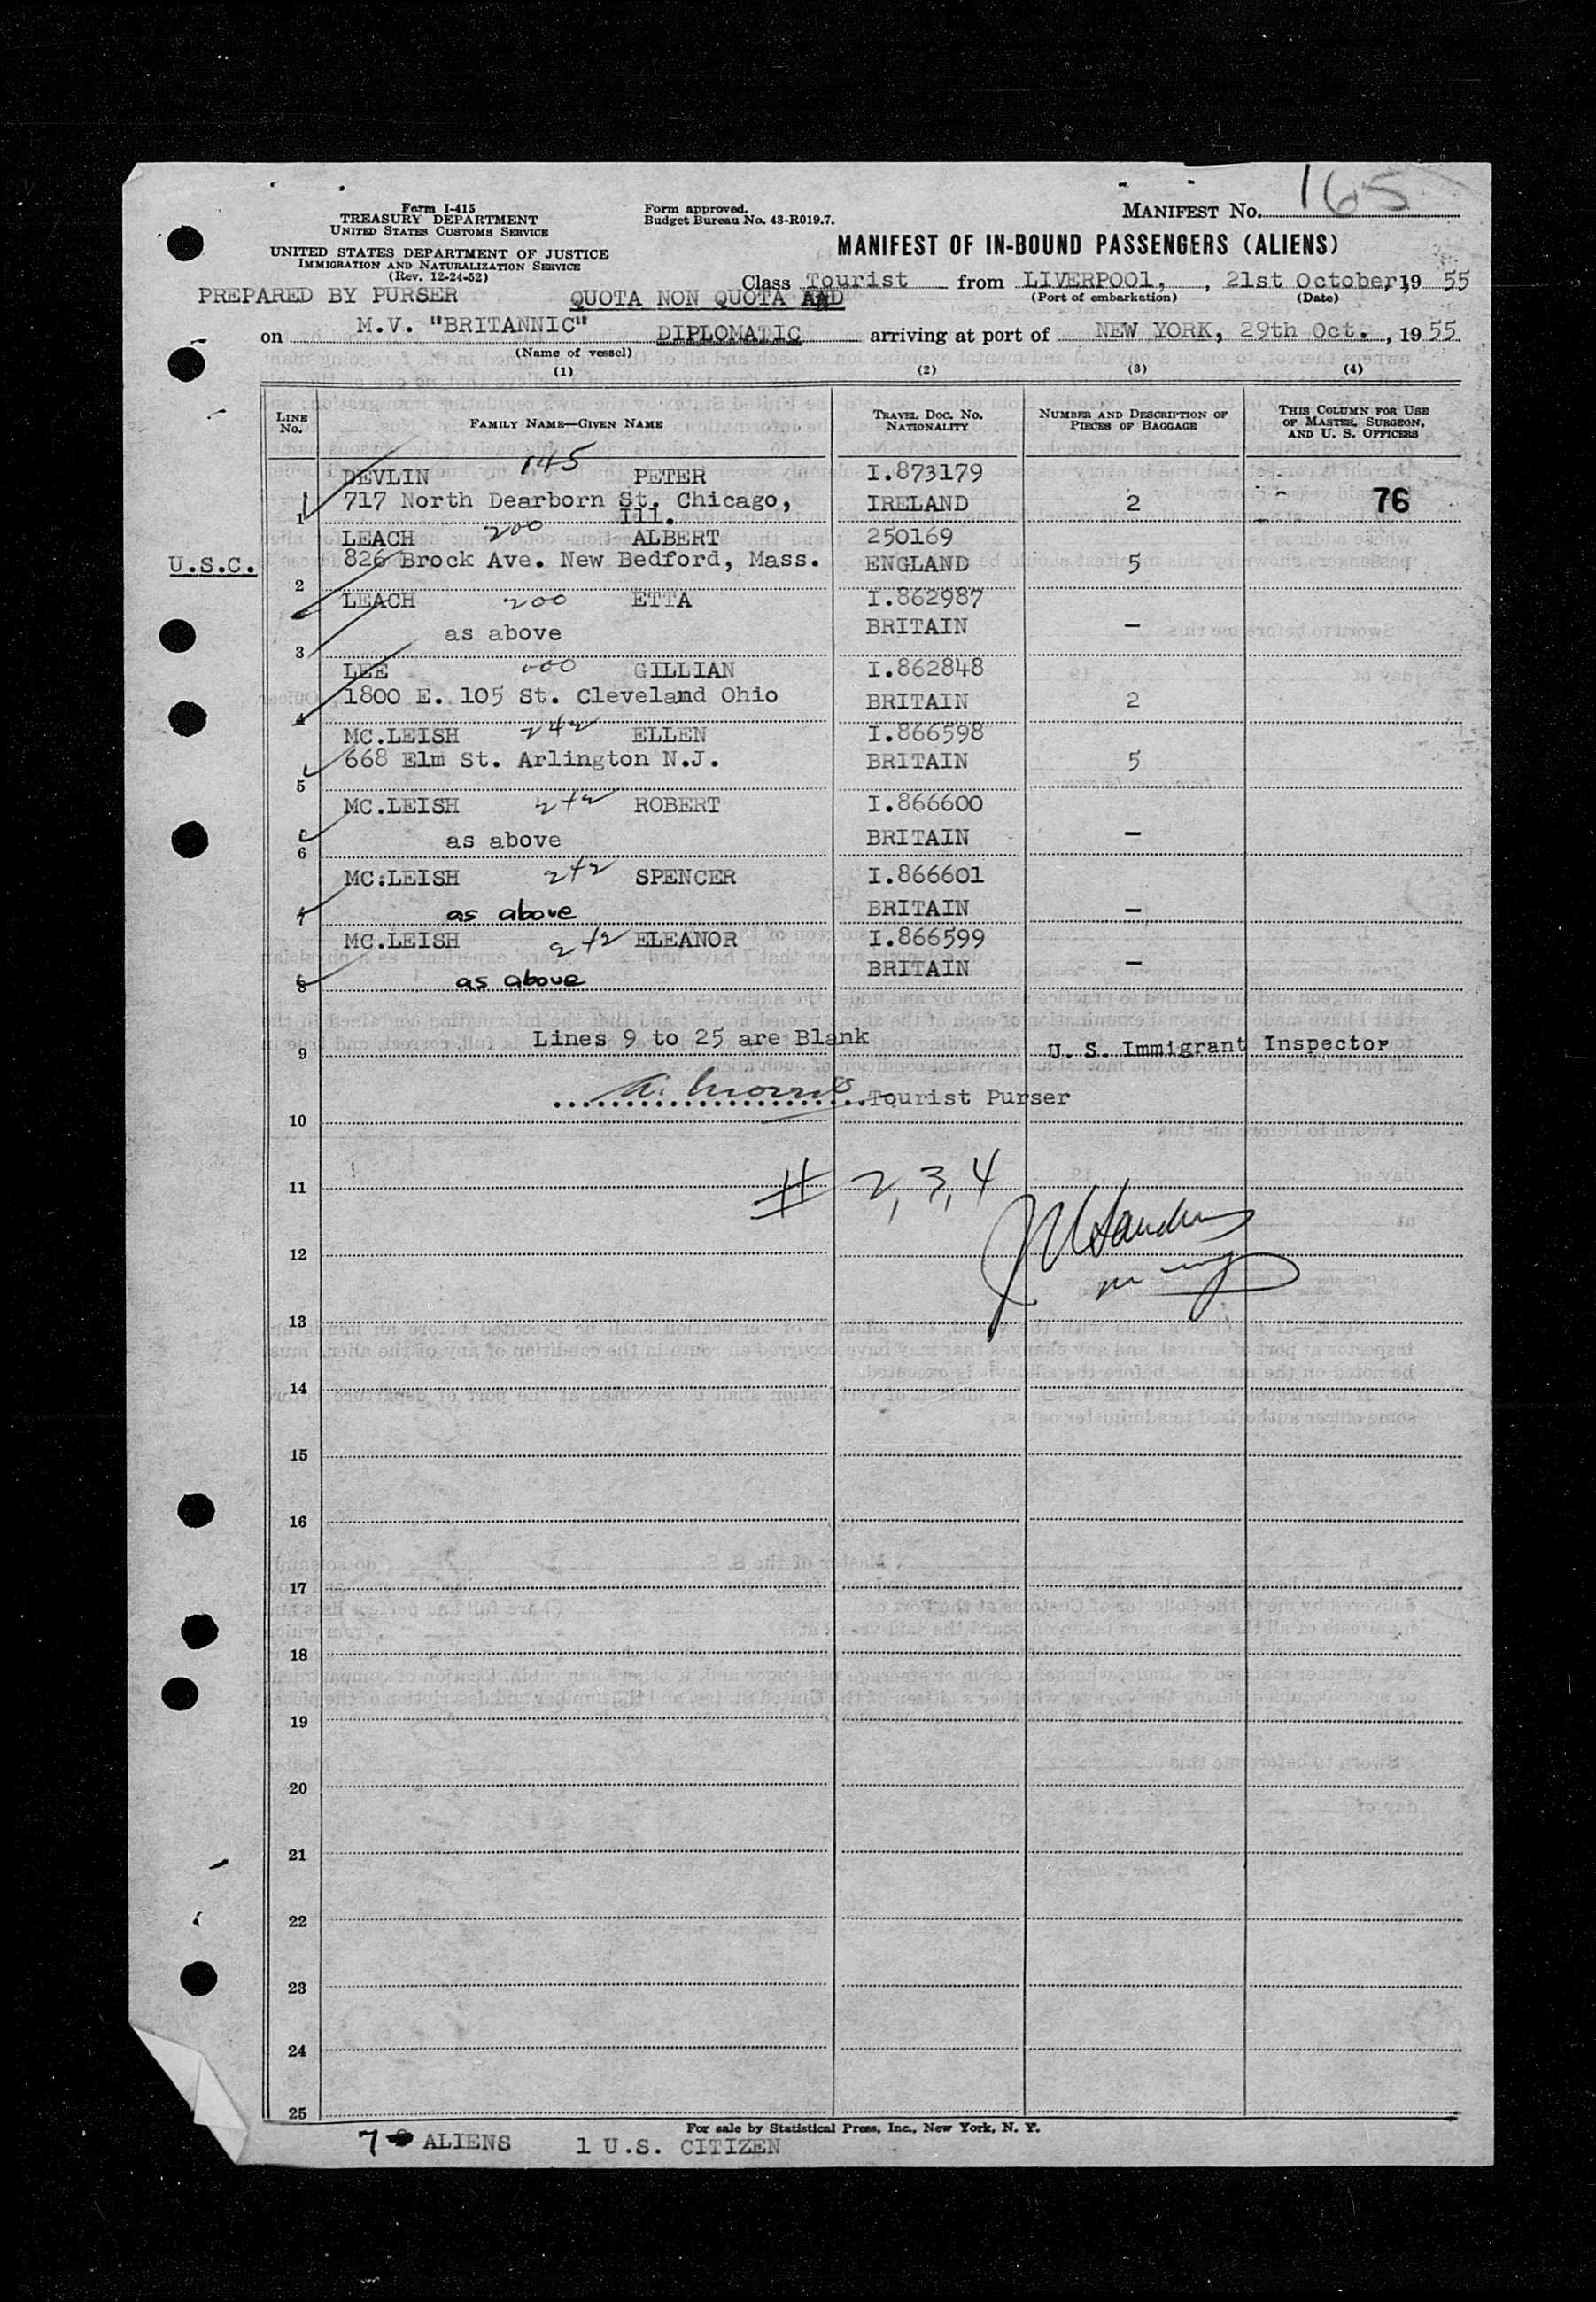 165
Form I-415
TREASURY DEPARTMENT
UNITED STATES CUSTOMS SERVICE
UNITED STATES DEPARTMENT OF JUSTICE
IMMIGRATION AND NATURALIZATION SERVICE
(Rev. 12-24-52)
Form approved.
Budget Bureau No. 43-R019.7.
MANIFEST NO.
MANIFEST OF IN-BOUND PASSENGERS (ALIENS)
Class Tourist from LIVERPOOl, , 21st October, 19 55
(Port of embarkation) (Date)
PREPARED BY PURSER QUOTA NON QUOTA AND
on M.V. "BRITANNIC" DIPLOMATIC arriving at port of NEW YORK, 29th Oct. , 19 55
(Name of vessel)
(1) (2) (3) (4)
LINE NO. FAMILY NAME—GIVEN NAME TRAVEL DOC. NO. NATIONALITY NUMBER AND DESCRIPTION OF PIECES OF BAGGAGE THIS COLUMN FOR USE OF MASTER, SURGEON, AND U. S. OFFICERS
DEVLIN 145 PETER I.873179
1 717 North Dearborn St. Chicago, IRELAND 2 76
ill.
LEACH 200 ALBERT 250169
U.S.C. 826 Brock Ave. New Bedford, Mass. ENGLAND 5
2
LEACH 200 ETTA I.862987
as above BRITAIN —
3
LEE 000 GILLIAN I.862848
1800 E. 105 St. Cleveland Ohio BRITAIN 2
4
MC.LEISH 242 ELLEN I.866598
668 Elm St. Arlington N.J. BRITAIN 5
5
MC.LEISH 242 ROBERT I.866600
as above BRITAIN —
6
MC.LEISH 242 SPENCER I.866601
7 as above BRITAIN —
MC.LEISH 242 ELEANOR I.866599
8 as above BRITAIN —
Lines 9 to 25 are Blank
9 U. S. Immigrant Inspector
Tourist Purser
10
# 2, 3, 4
11
12
13
14
15
16
17
18
19
20
21
22
23
24
25
For sale by Statistical Press, Inc., New York, N. Y.
7 ALIENS 1 U.S. CITIZEN